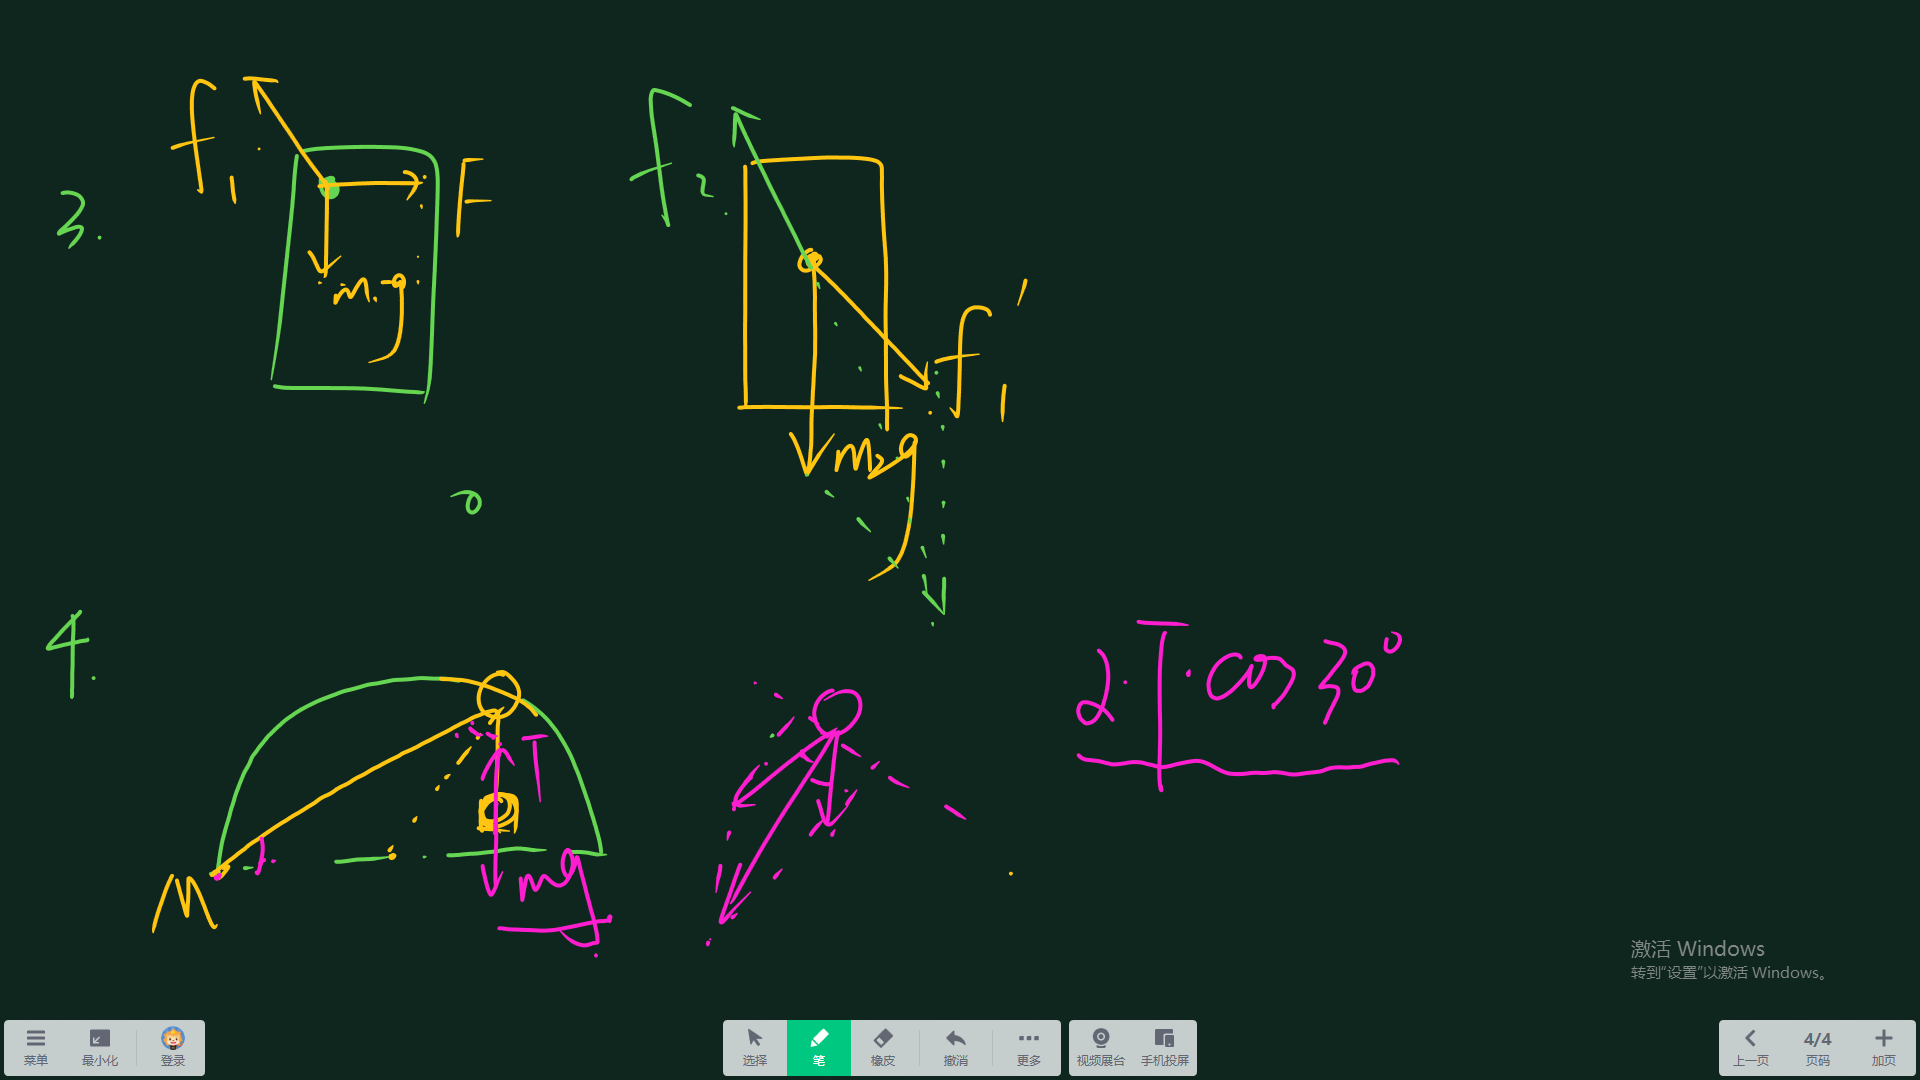 3.
f₁
F
m₁g
f₂
f₁'
m₂g
4.
M
T
mg
2·T·cos30°
激活 Windows
转到“设置”以激活 Windows。
菜单
最小化
登录
选择
笔
橡皮
撤消
更多
视频展台
手机投屏
上一页
4/4
页码
加页